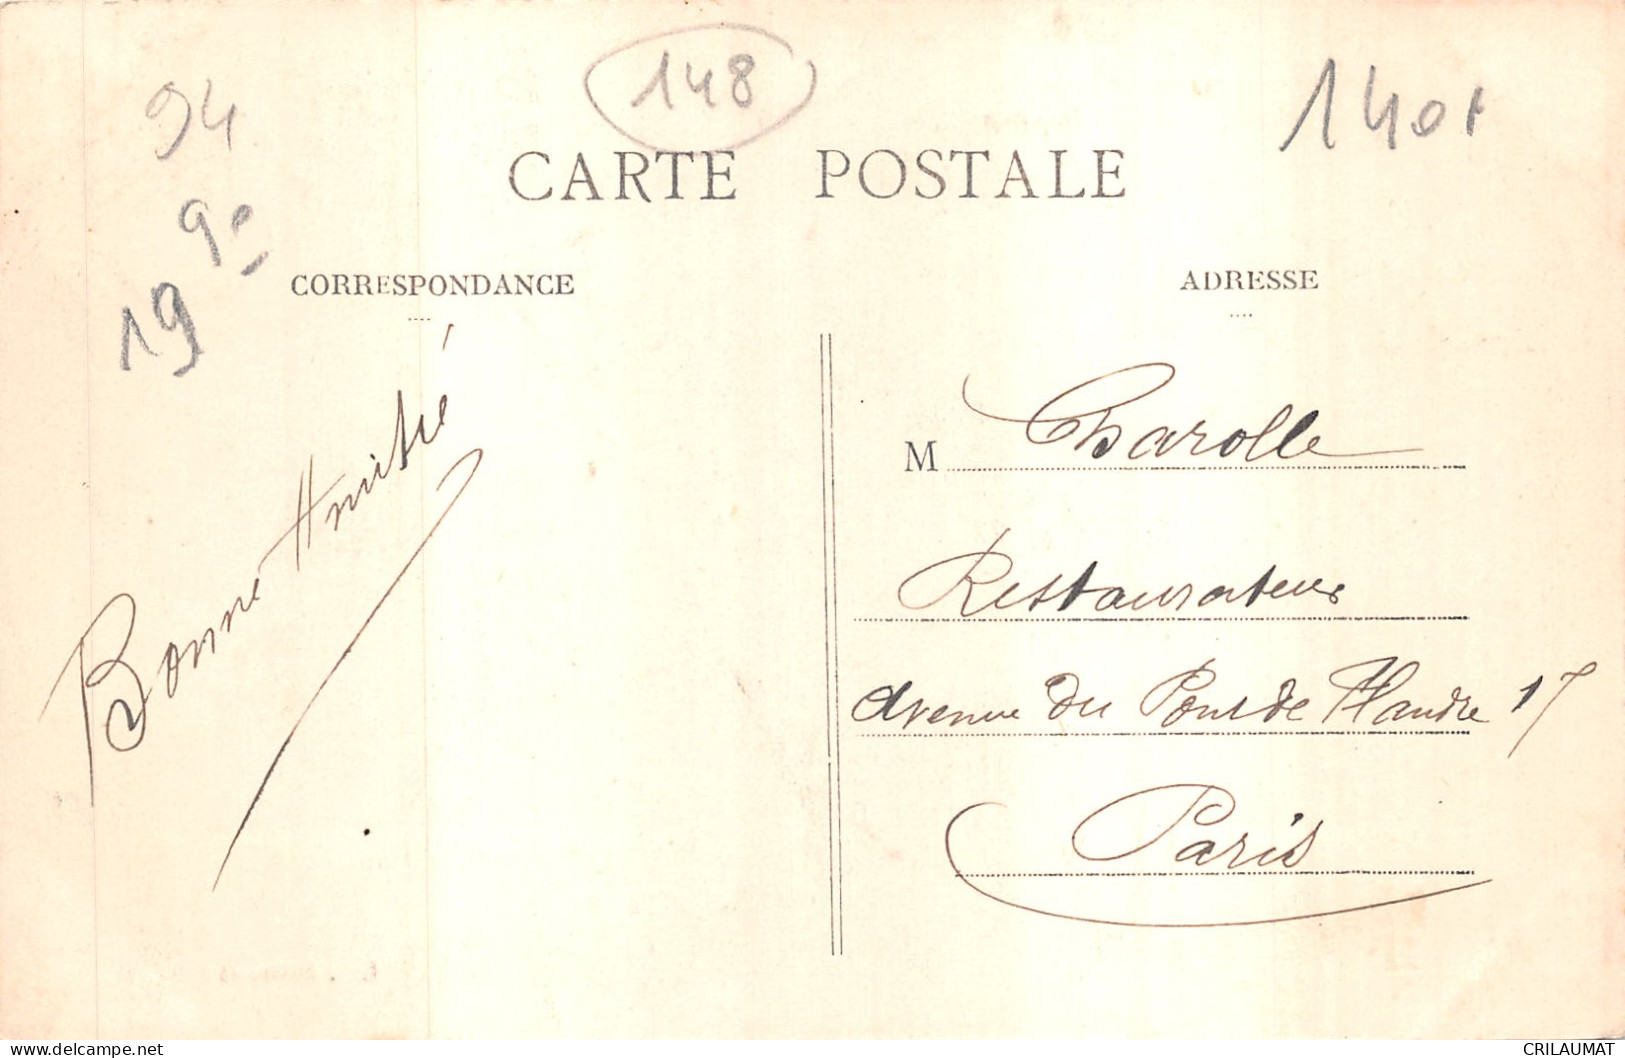 94
148
140F
CARTE POSTALE
9=
19
CORRESPONDANCE
ADRESSE
Bonne Amitié
M Charolle
Restaurateur
Avenue du Pont de Flandre 17
Paris
CRILAUMAT